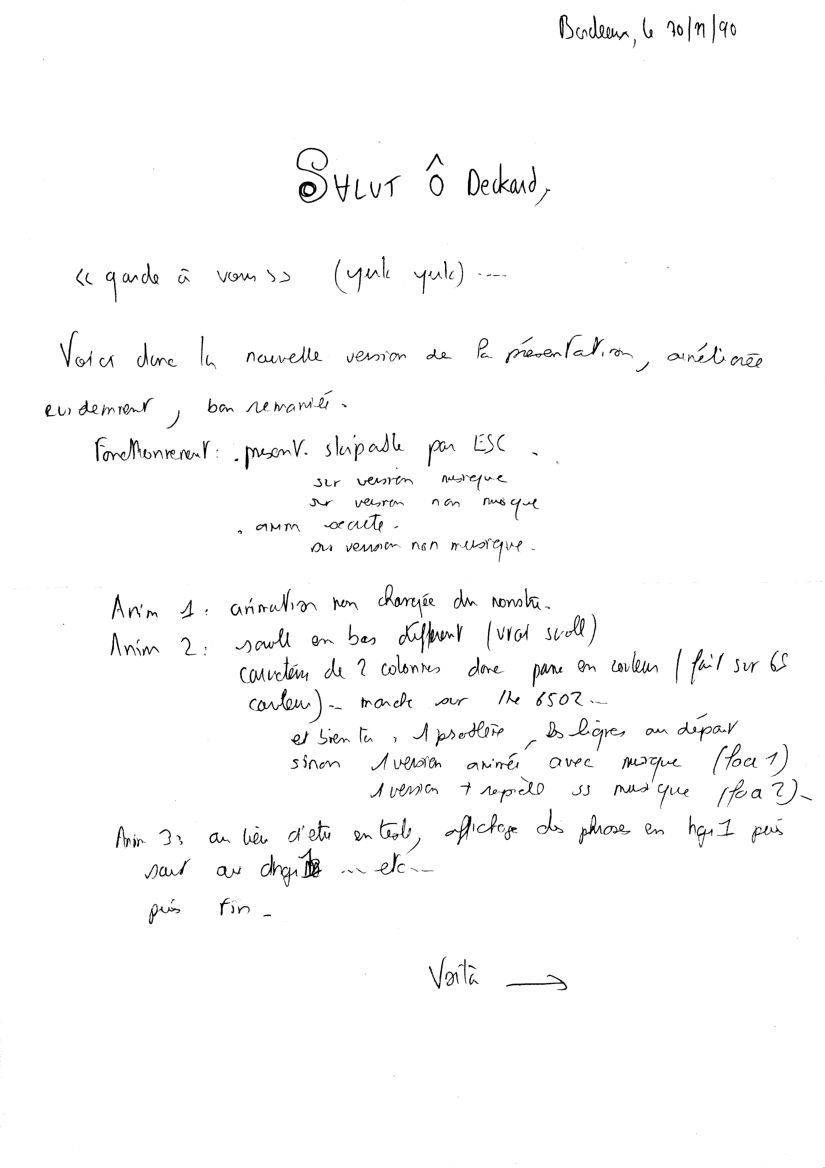 Bordeaux, le 30/11/90
SALUT Ô Deckard,
<< garde à vous >> (yuk yuk) ....
Voici donc la nouvelle version de la présentation, améliorée
evidemment, bon remaniée.
Fonctionnement: . present. skipable par ESC .
sur version musique
sur version non musique
. anim secrète.
sur version non musique.
Anim 1: animation non changée du monstre.
Anim 2: scroll en bas différent (vrai scroll)
caractères de 2 colonnes donc passe en couleur (fait sur GS
couleur)_ marche sur IIe 6502 _
et bien sur, 1 problème, les lignes au départ
sinon 1 version animée avec musique (foca 1)
1 version + rapide ss musique (foca 2)_
Anim 3: au lieu d'etre en texte, affichage des phrases en hgr1 puis
saut au dhgr1 ... etc...
puis fin _
Voilà →